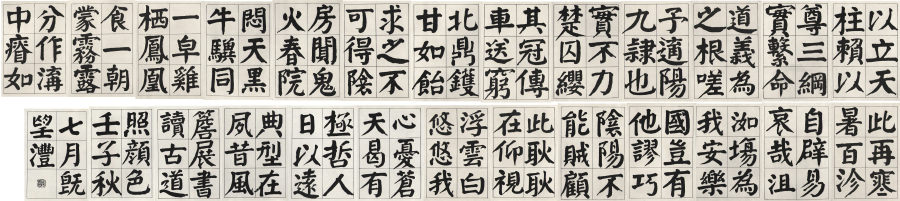 以立天
柱賴以
尊三綱
實繫命
道義為
之根嗟
予遘陽
九隸也
實不力
楚囚纓
其冠傳
車送窮
北鼎鑊
甘如飴
求之不
可得陰
房闃鬼
火春院
閟天黑
牛驥同
一皁雞
栖鳳凰
食一朝
蒙霧露
分作溝
中瘠如
此再寒
暑百沴
自辟易
哀哉沮
洳場為
我安樂
國豈有
他謬巧
陰陽不
能賊顧
此耿耿
在仰視
浮雲白
悠悠我
心憂蒼
天曷有
極哲人
日以遠
典型在
夙昔風
簷展書
讀古道
照顏色
壬子秋
七月既
望灃